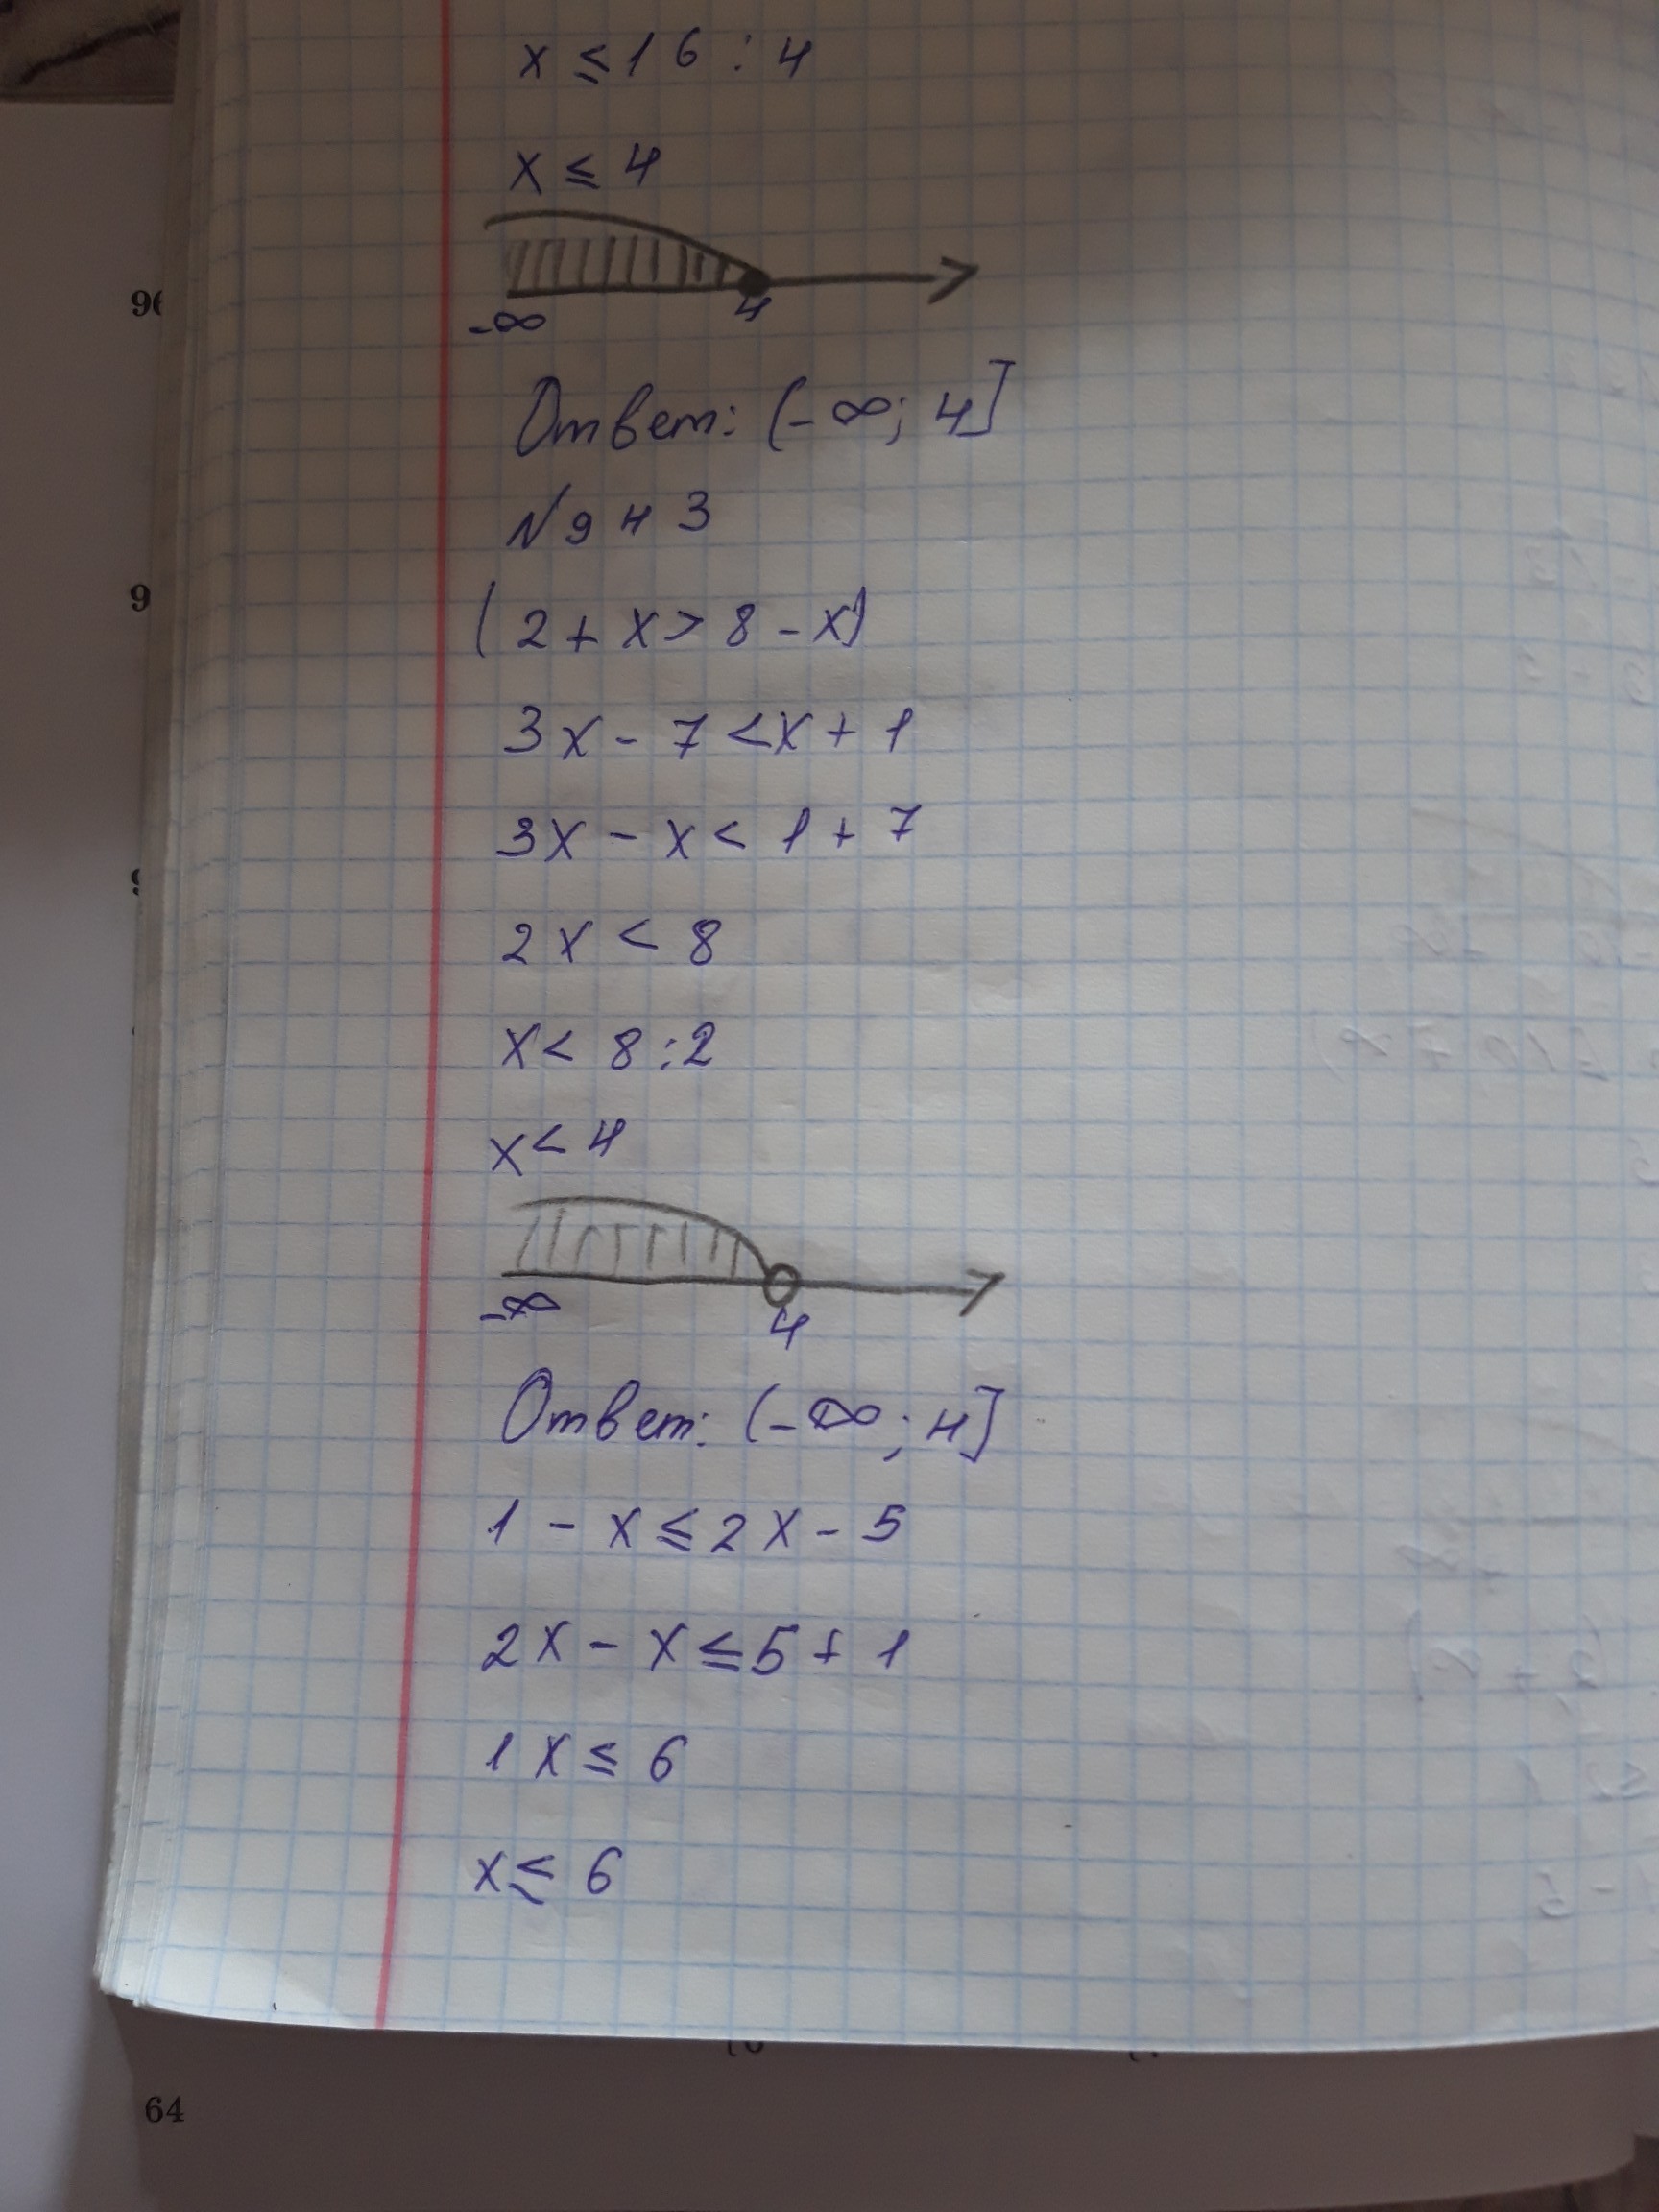 x ≤ 16 : 4
x ≤ 4
-∞ 4
Ответ: (-∞; 4]
N943
(2 + x > 8 - x)
3x - 7 < x + 1
3x - x < 1 + 7
2x < 8
x < 8 : 2
x < 4
-∞ 4
Ответ: (-∞; 4]
1 - x ≤ 2x - 5
2x - x ≤ 5 + 1
1x ≤ 6
x ≤ 6
64